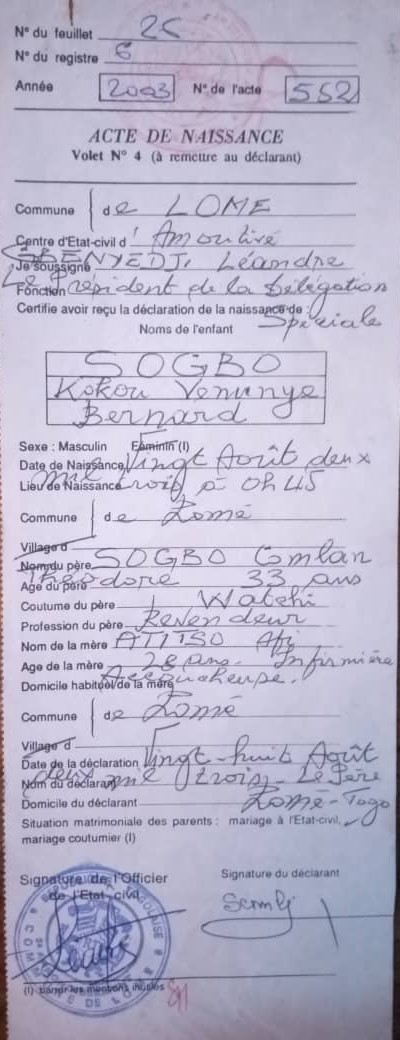 N° du feuillet 26
N° du registre 6
Année 2003 N° de l'acte 552
ACTE DE NAISSANCE
Volet N° 4 (à remettre au déclarant)
Commune de LOME
Centre d'Etat-civil d' Amoutivé
Je soussigné GBENYEDJI Léandre
Fonction Le Président de la Délégation
Certifie avoir reçu la déclaration de la naissance de : Spéciale
Noms de l'enfant
SOGBO
Kokou Venunye
Bernard
Sexe : Masculin Féminin (I)
Date de Naissance Vingt Août deux
Lieu de Naissance mil trois à 0h 45
Commune de Lomé
Village d
Nom du père SOGBO Comlan
Age du père Théodore 33 ans
Coutume du père Watchi
Profession du père Revendeur
Nom de la mère ATITSO Afi
Age de la mère 28 ans - Infirmière
Domicile habituel de la mère Accoucheuse.
Commune de Lomé
Village d
Date de la déclaration Vingt-huit Août
Nom du déclarant deux mil trois - Le Père
Domicile du déclarant Lomé-Togo
Situation matrimoniale des parents : mariage à l'Etat-civil,
mariage coutumier (I)
Signature de l'Officier
de l'Etat-civil
Signature du déclarant
(I) barrer les mentions inutiles